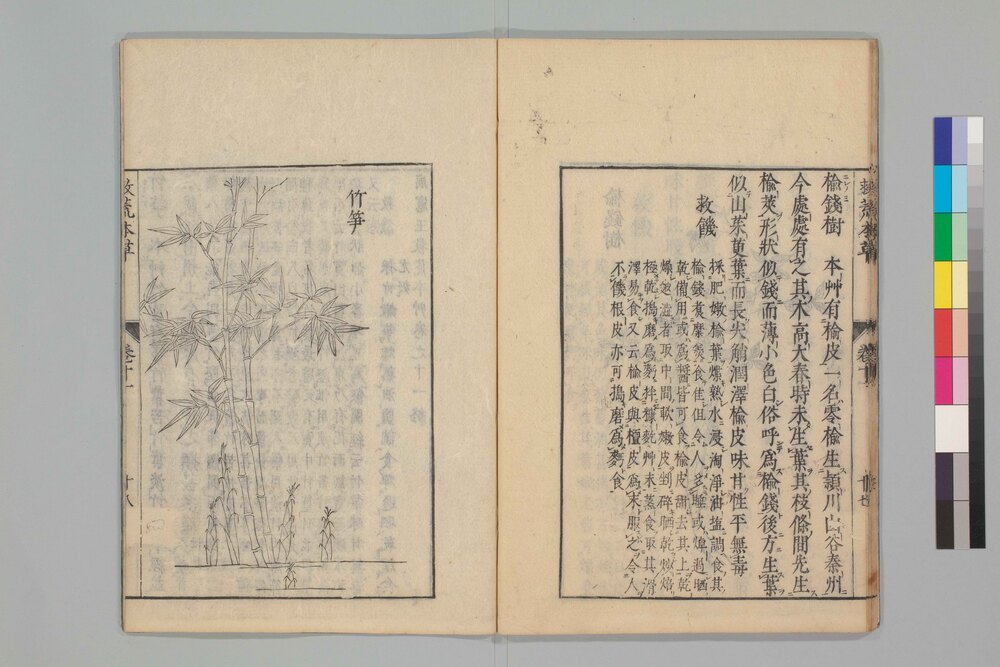 救荒本草
卷十
榆錢樹　本艸有榆皮一名零榆生頴川山谷秦州
今處處有之其木高大春時未生葉其枝條間先生
榆莢形狀似錢而薄小色白俗呼爲榆錢後方生葉
似山茱萸葉而長尖艄潤澤榆皮味甘性平無毒
救饑
採肥嫩榆葉煠熟水浸淘淨油塩調食其
榆錢煮糜羹食佳但令人多睡或煠過晒
乾備用或爲醬皆可食榆皮刮去其上乾
燥皴澁者取中間軟嫩皮剉碎晒乾炒焙
極乾搗磨爲麪拌糠麧艸末蒸食取其滑
澤易食又云榆皮與檀皮爲末服之令人
不饑根皮亦可搗磨爲麪食
竹笋
救荒本草
卷十一
十八